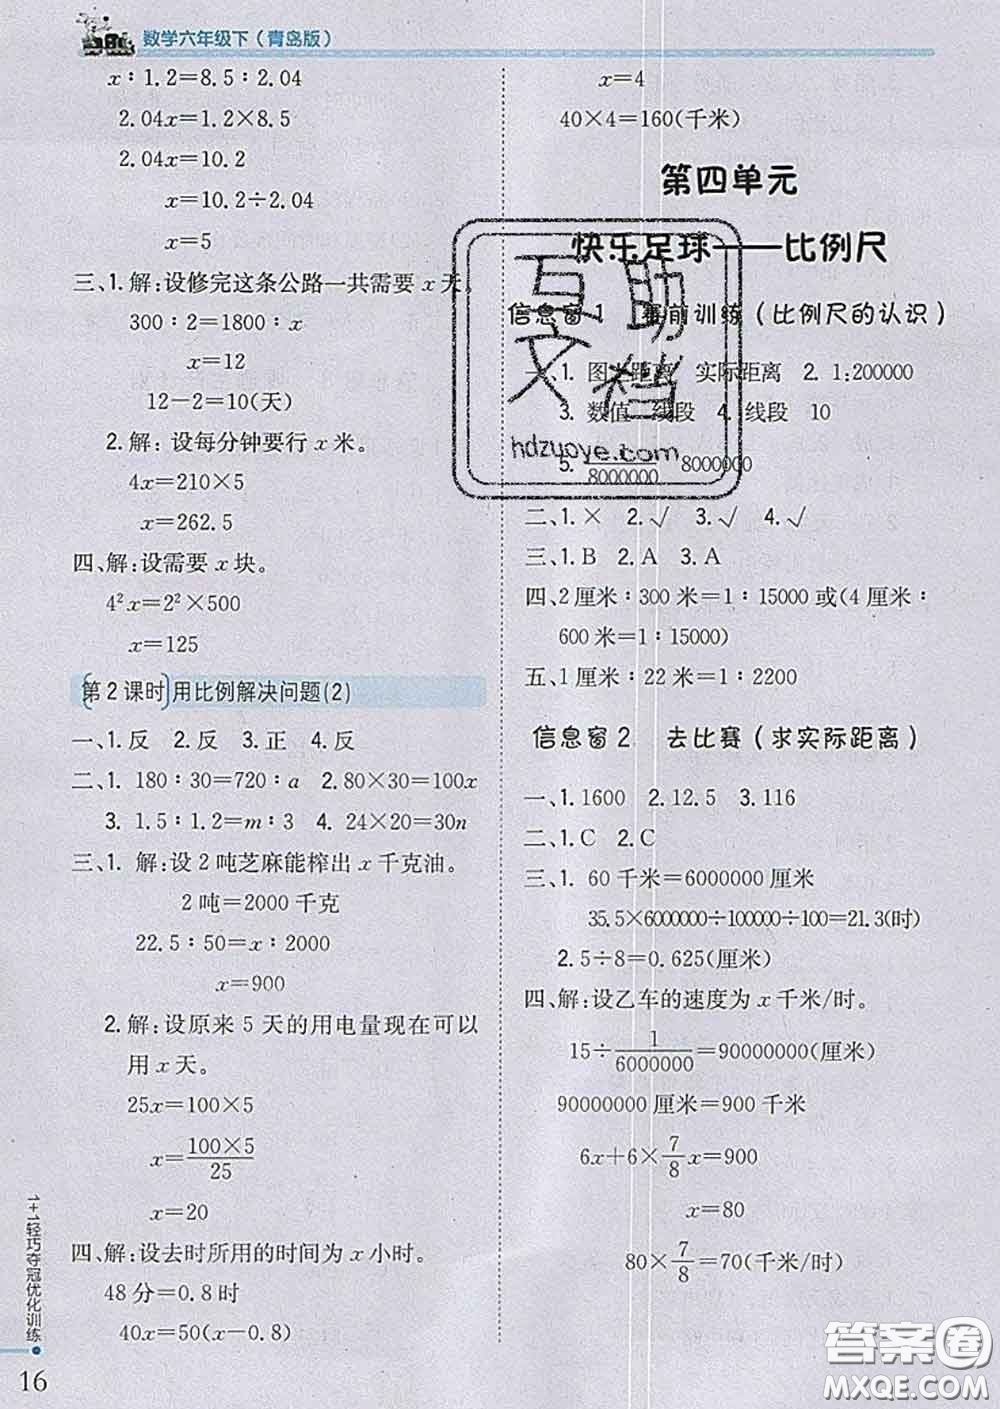 数学六年级下(青岛版)
x∶1.2=8.5∶2.04
2.04x=1.2×8.5
2.04x=10.2
x=10.2÷2.04
x=5
三、1. 解:设修完这条公路一共需要 x 天。
300∶2=1800∶x
x=12
12-2=10(天)
2. 解:设每分钟要行 x 米。
4x=210×5
x=262.5
四、解:设需要 x 块。
4²x=2²×500
x=125
第 2 课时 用比例解决问题(2)
一、1. 反 2. 反 3. 正 4. 反
二、1. 180∶30=720∶a 2. 80×30=100x
3. 1.5∶1.2=m∶3 4. 24×20=30n
三、1. 解:设 2 吨芝麻能榨出 x 千克油。
2 吨=2000 千克
22.5∶50=x∶2000
x=900
2. 解:设原来 5 天的用电量现在可以
用 x 天。
25x=100×5
x=100×5/25
x=20
四、解:设去时所用的时间为 x 小时。
48 分=0.8 时
40x=50(x-0.8)
x=4
40×4=160(千米)
第四单元
快乐足球——比例尺
信息窗 1 赛前训练(比例尺的认识)
一、1. 图上距离 实际距离 2. 1:200000
3. 数值 线段 4. 线段 10
5. /8000000 8000000
二、1. × 2. √ 3. √ 4. √
三、1. B 2. A 3. A
四、2 厘米∶300 米=1∶15000 或(4 厘米∶
600 米=1∶15000)
五、1 厘米∶22 米=1∶2200
信息窗 2 去比赛(求实际距离)
一、1. 1600 2. 12.5 3. 116
二、1. C 2. C
三、1. 60 千米=6000000 厘米
35.5×6000000÷100000÷100=21.3(时)
2. 5÷8=0.625(厘米)
四、解:设乙车的速度为 x 千米/时。
15÷1/6000000=90000000(厘米)
90000000 厘米=900 千米
6x+6×7/8x=900
x=80
80×7/8=70(千米/时)
互助
文档
hdzuoye.com
1+1轻巧夺冠优化训练
16
答案圈
MXQE.COM